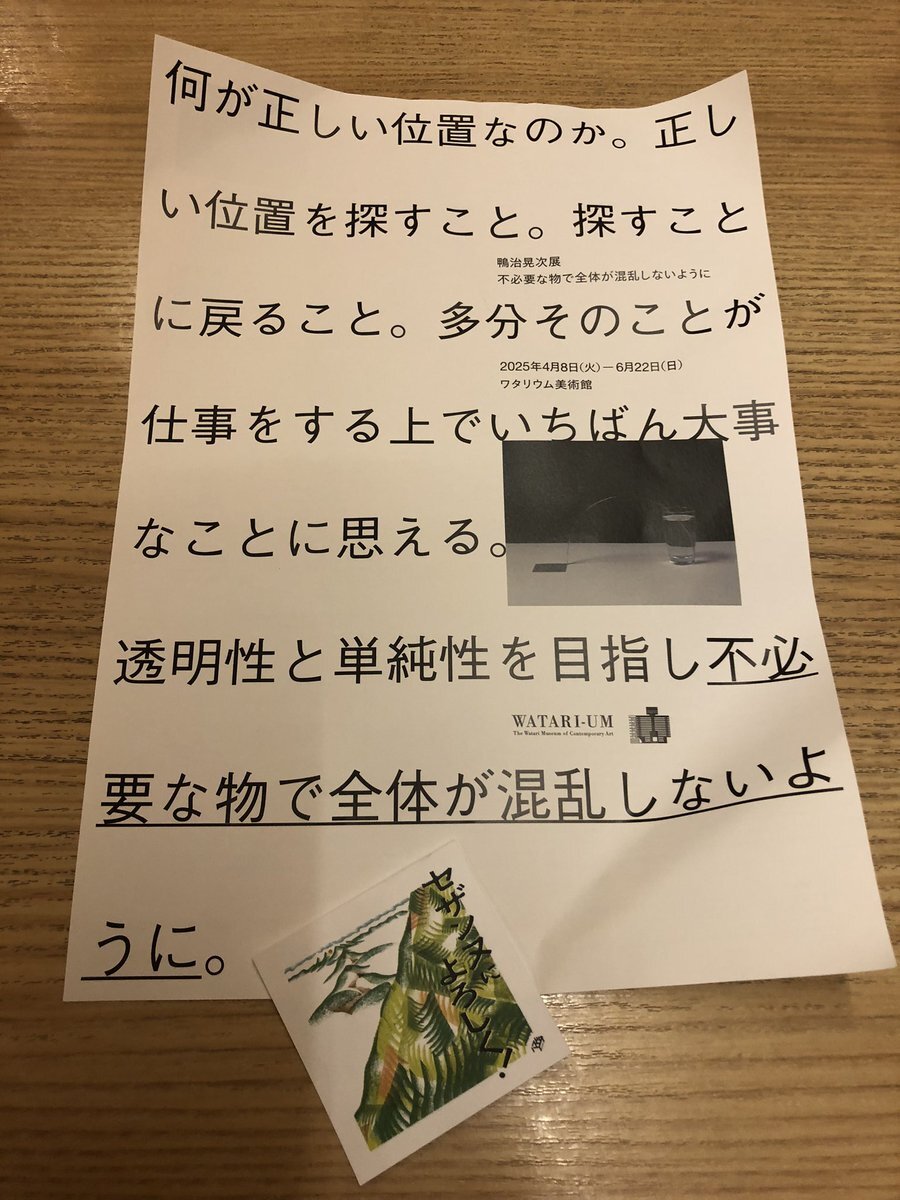 何が正しい位置なのか。正し
い位置を探すこと。探すこと
鴨治晃次展
不必要な物で全体が混乱しないように
に戻ること。多分そのことが
2025年4月8日(火)－6月22日(日)
ワタリウム美術館
仕事をする上でいちばん大事
なことに思える。
透明性と単純性を目指し不必
WATARI-UM
The Watari Museum of Contemporary Art
要な物で全体が混乱しないよ
うに。
セザンヌによろしく!